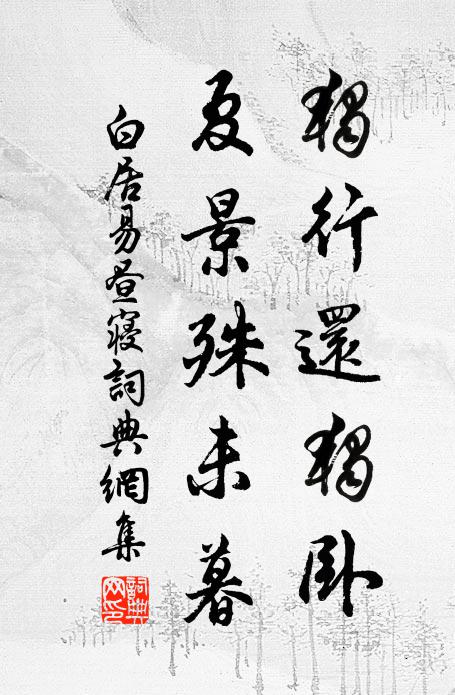 獨行還獨臥
夏景殊未暮
白居易晝寢詞典網集
詞典